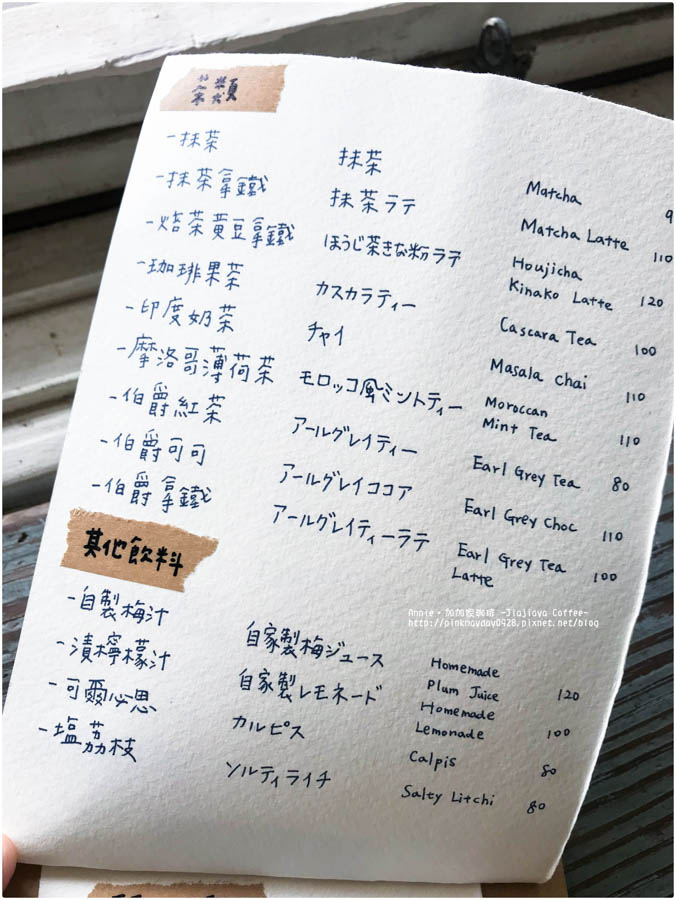 茶類
-抹茶 抹茶 Matcha 9
-抹茶拿鐵 抹茶ラテ Matcha Latte 110
-焙茶黃豆拿鐵 ほうじ茶きな粉ラテ Houjicha
Kinako Latte 120
-珈琲果茶 カスカラティー Cascara Tea 100
-印度奶茶 チャイ Masala Chai 110
-摩洛哥薄荷茶 モロッコ風ミントティー Moroccan
Mint Tea 110
-伯爵紅茶 アールグレイティー Earl Grey Tea 80
-伯爵可可 アールグレイココア Earl Grey Choc 110
-伯爵拿鐵 アールグレイティーラテ Earl Grey Tea
Latte 100
其他飲料
-自製梅汁 自家製梅ジュース Homemade
Plum Juice 120
-漬檸檬汁 自家製レモネード Homemade
Lemonade 100
-可爾必思 カルピス Calpis 80
-塩荔枝 ソルティライチ Salty Litchi 80
Annie·加加家珈琲 -Jiajiaya Coffee-
http://pinknayday0428.pixnet.net/blog